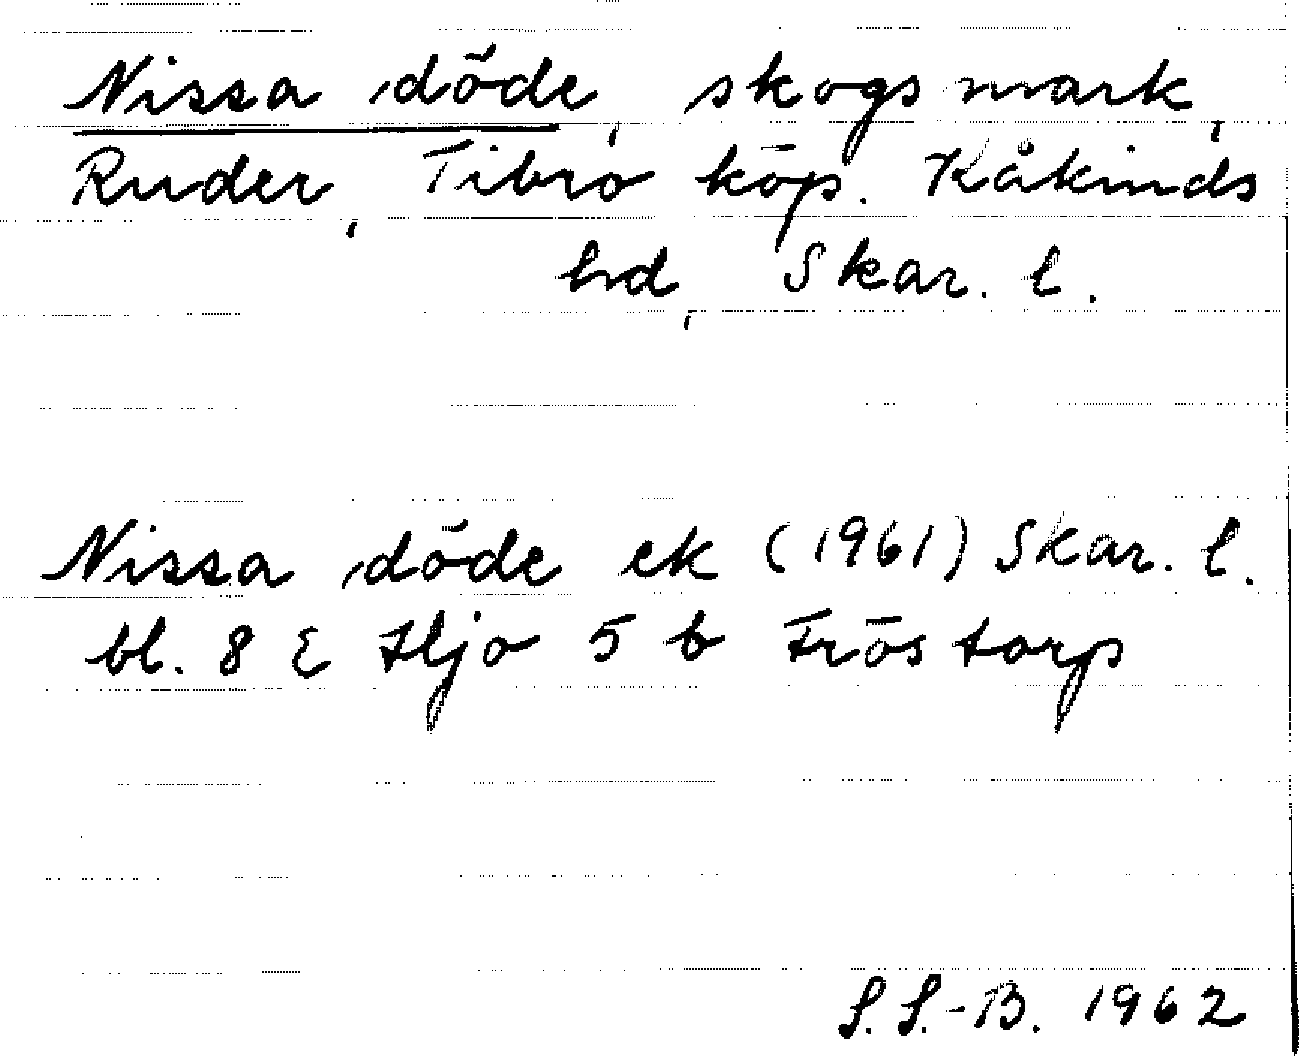 Nissa döde, skogsmark,
Ruder, Tibro köp. Kåkinds
hd, Skar. l.
Nissa döde ek (1961) Skar. l.
bl. 8 E Hjo 5 b Fröstorp
S. S.-B. 1962